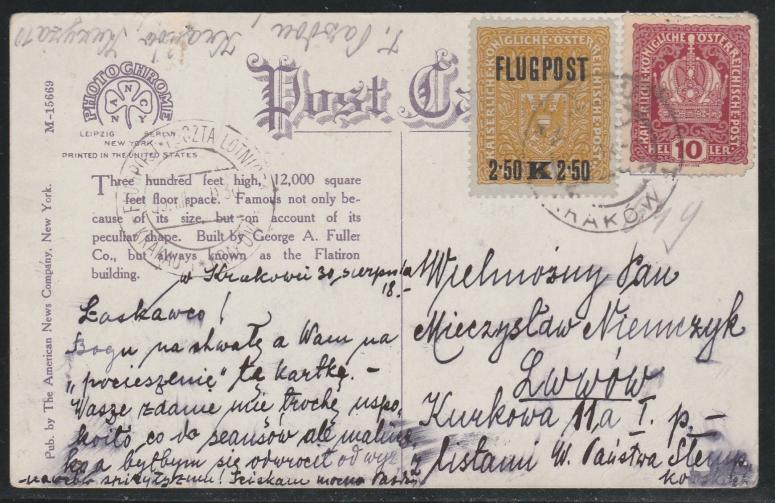 Kraków, Krzyża 10
M-15669
PHOTOCHROME
N A N C T
LEIPZIG BERLIN
NEW YORK
PRINTED IN THE UNITED STATES
Post Ca
KAISERLICHE KÖNIGLICHE ÖSTERREICHISCHE POST
FLUGPOST
2·50 K 2·50
KAISERLICHE KÖNIGLICHE ÖSTERREICHISCHE POST
HEL 10 LER
KRAKÓW
Three hundred feet high, 12,000 square
feet floor space. Famous not only be-
cause of its size, but on account of its
peculiar shape. Built by George A. Fuller
Co., but always known as the Flatiron
building.
Pub. by The American News Company, New York.
w Krakowie 30 sierpnia
18.-
Łaskawco!
Bogu na chwałę a Wam na
„pocieszenie" tę kartkę. -
Wasze zdanie mię trochę uspo-
koiło co do seansów ale
a byłbym się odwrócił od
nawet spirytyzmu! Ściskam mocno
Wielmożny Pan
Mieczysław Niemczyk
Lwwów
Kurkowa 11a I. p. -
z listami W. Państwa Stemp